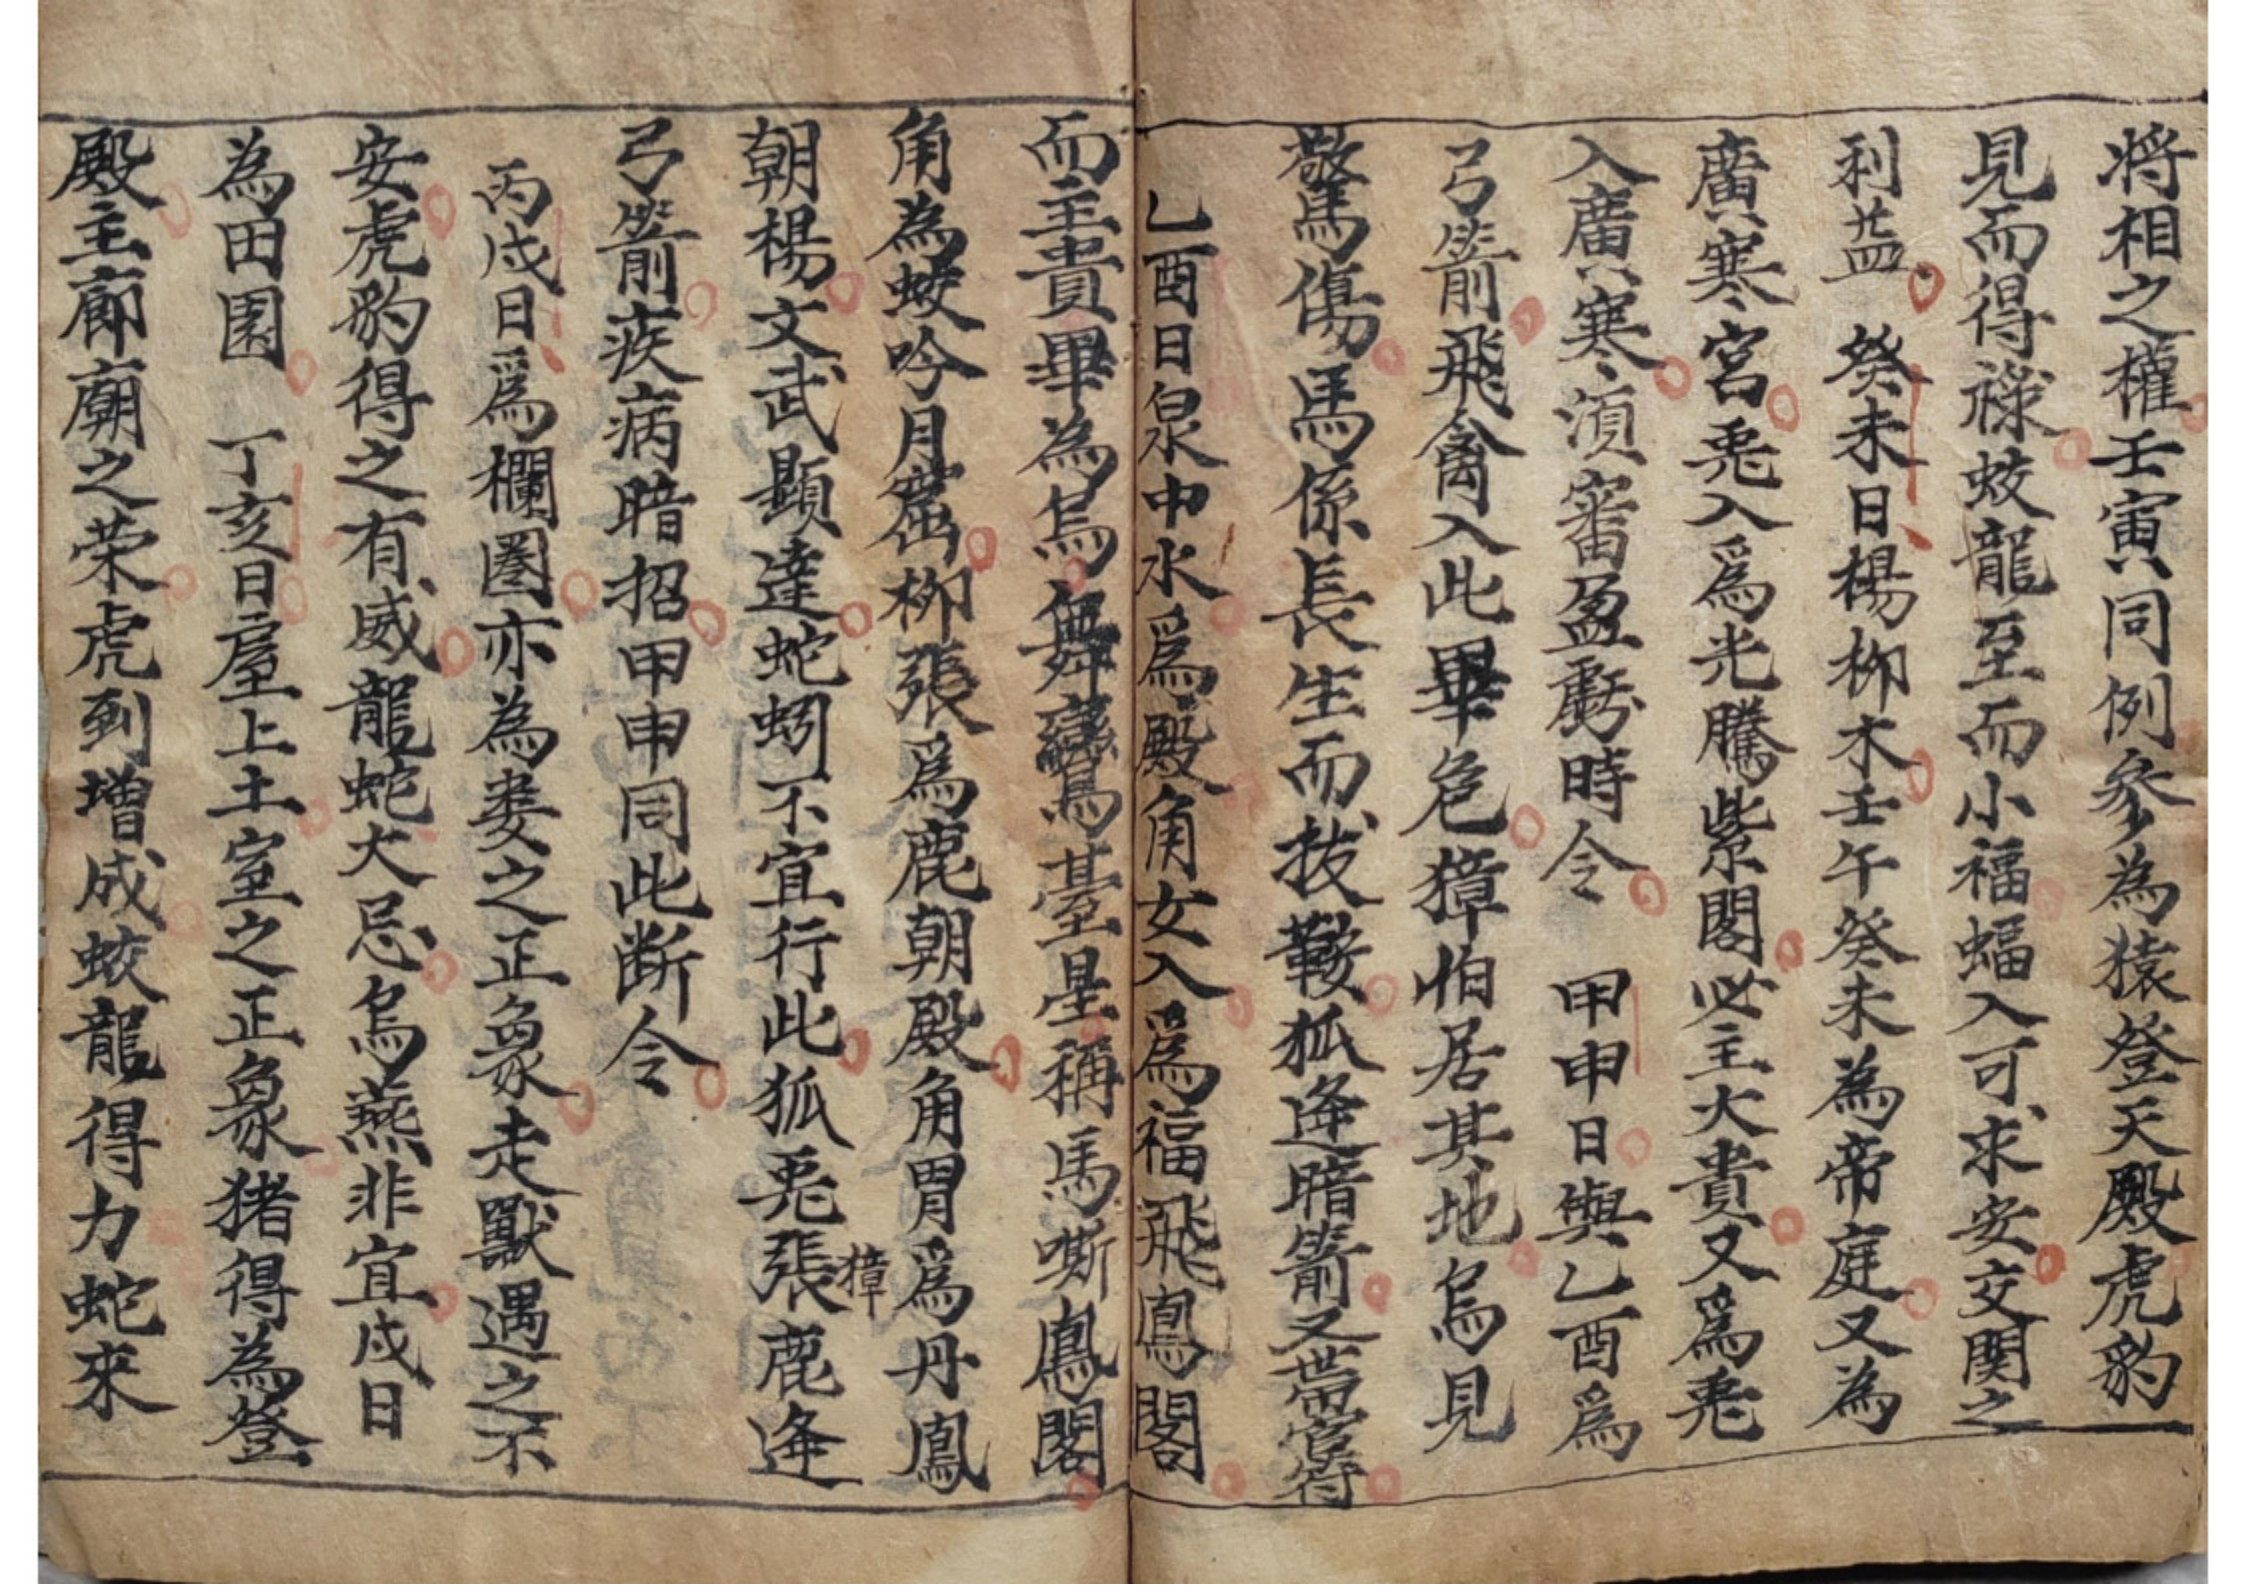 将相之權壬寅同例參為猿登天殿虎豹
見而得祿蛟龍至而小福蝠入可求安交関之
利益 癸未日楊柳木壬午癸未為帝庭又為
廣寒宮兎入爲光騰紫閣必主大貴又爲兎
入廣寒須審盈虧時令 甲申日與乙酉爲
弓箭飛禽入此畢危獐怕居其地烏見
驚傷馬係長生而披鞍狐逢暗箭又帶官符
乙酉日泉中水爲殿角女入爲福飛鳳閣
而主貴畢為烏舞鸞臺星稱馬嘶鳳閣
角為蛟吟月窟柳張爲鹿朝殿角胃爲丹鳳
朝楊文武顯達蛇蚓不宜行此狐兎張獐鹿逢
弓箭疾病暗招甲申同此断令
丙戌日爲欄圈亦為婁之正象走獸遇之不
安虎豹得之有威龍蛇大忌烏燕非宜戌日
為田園 丁亥日屋上土室之正象猪得為登
殿主廊廟之荣虎到增成蛟龍得力蛇來